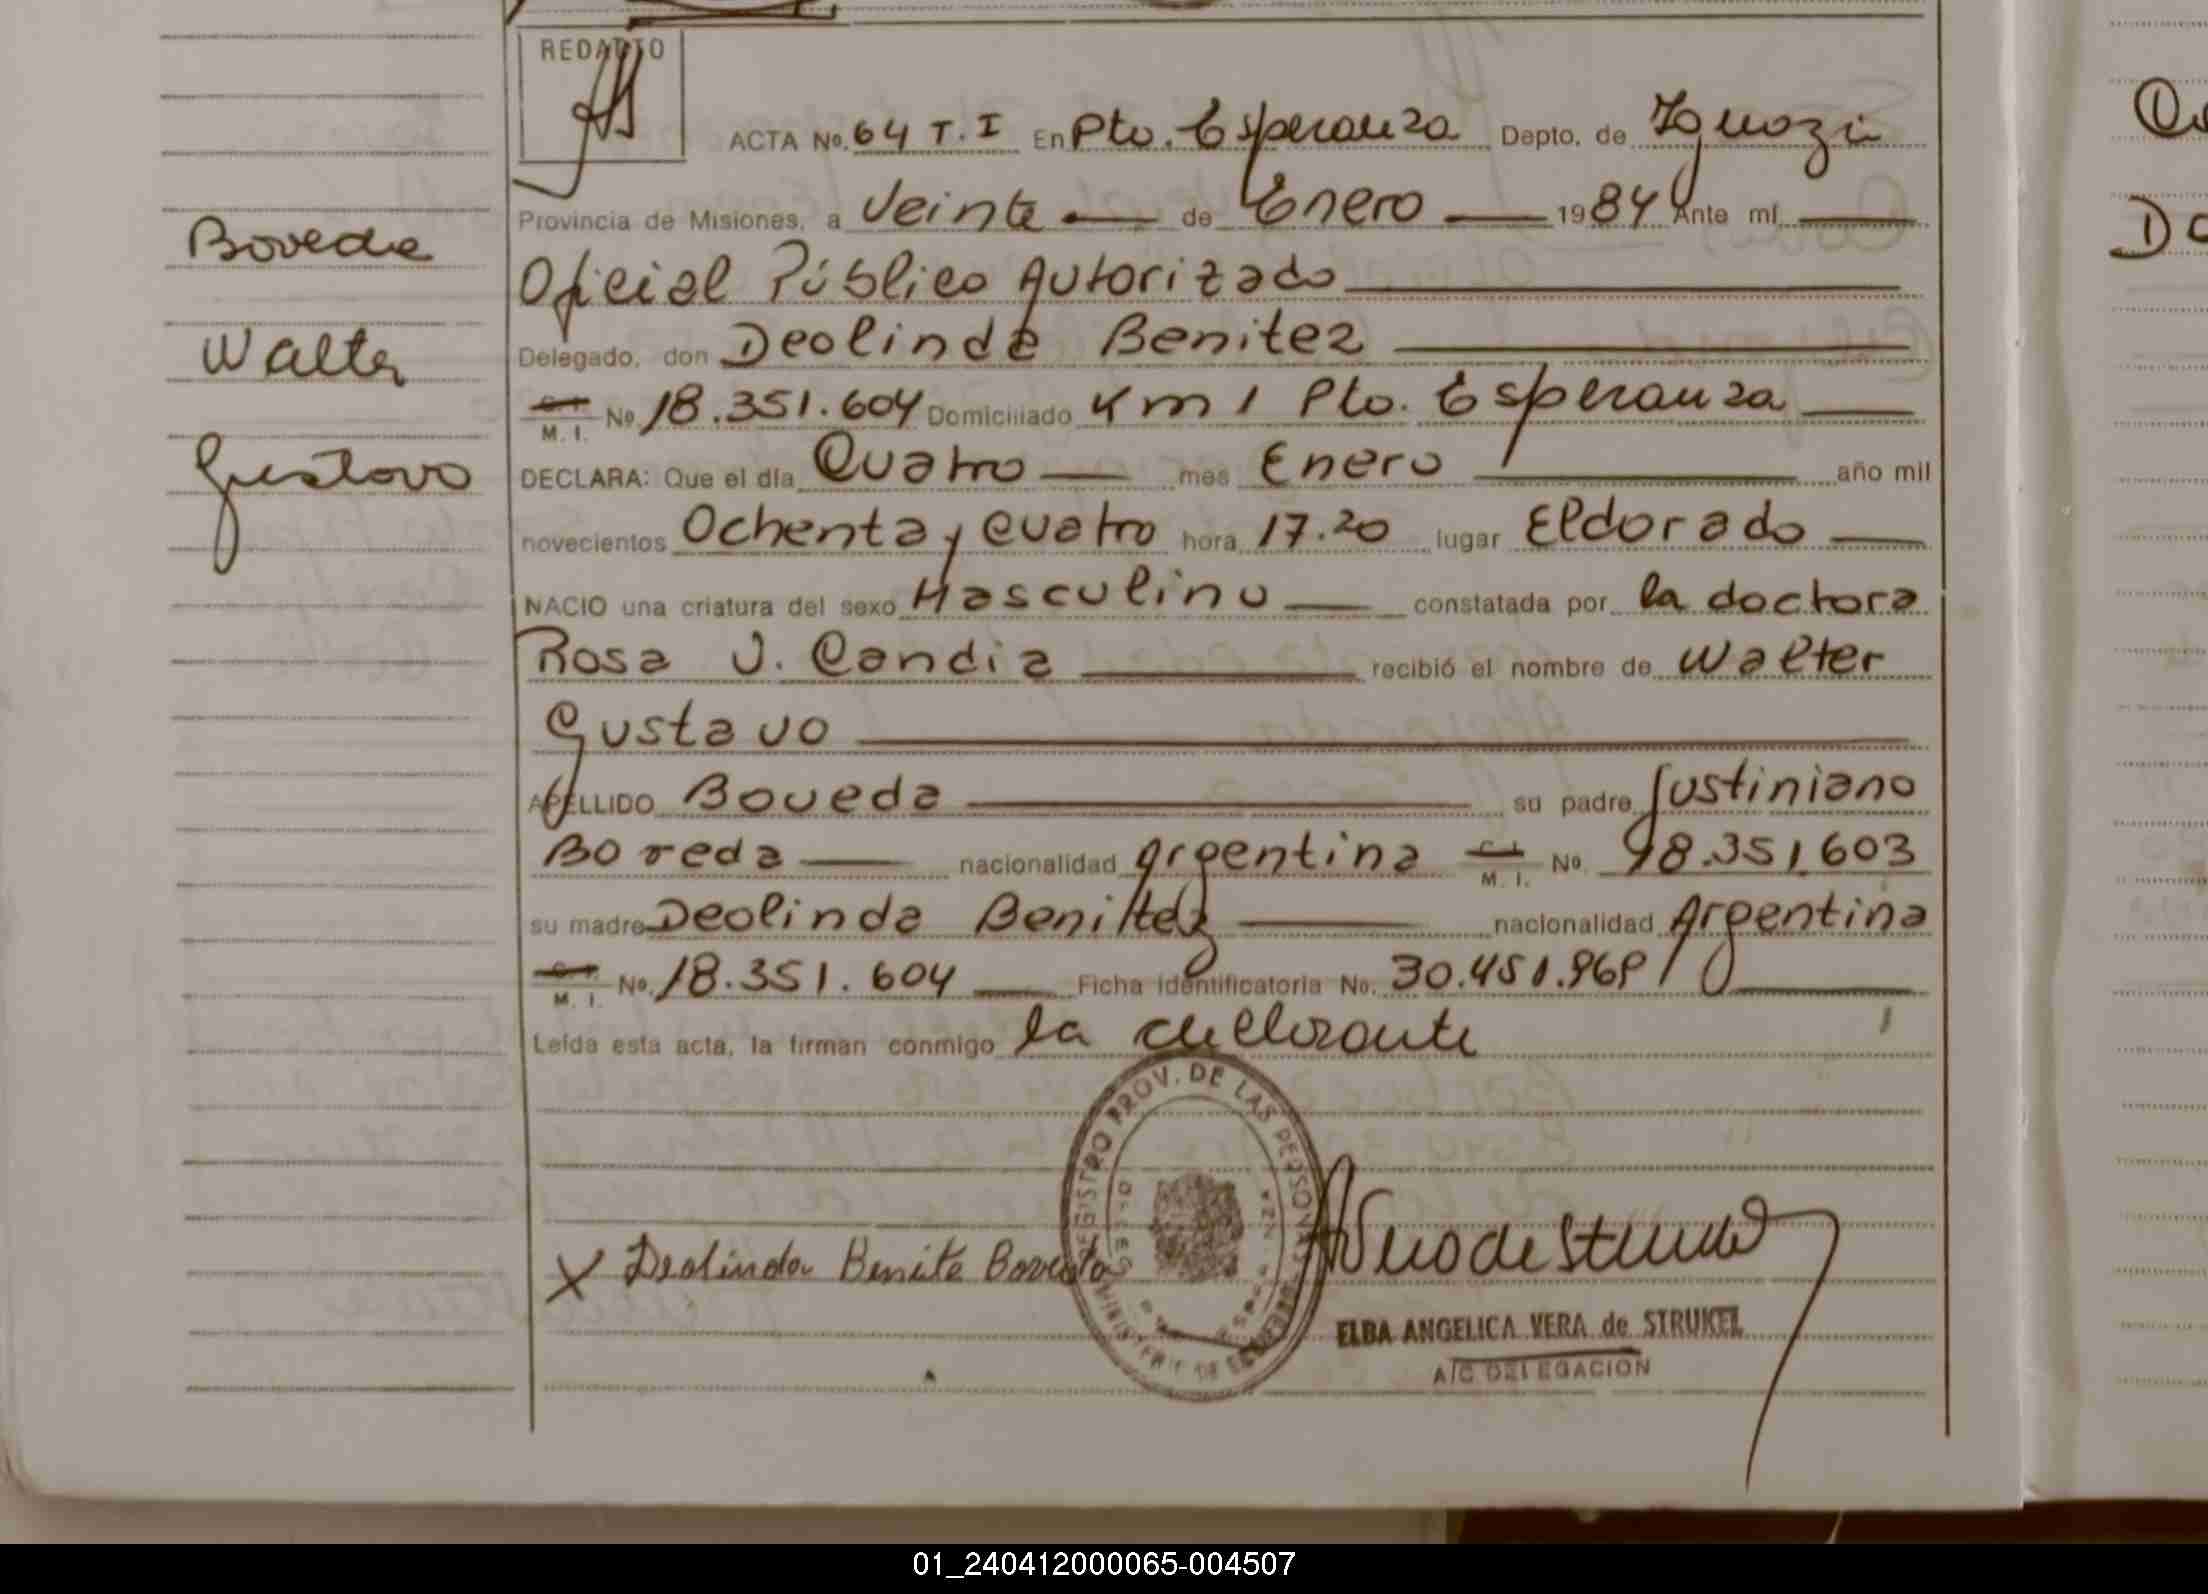 REDACTO
ACTA No. 64 T. I En Pto. Esperanza Depto. de Iguazú
Provincia de Misiones, a Veinte de Enero 1984 Ante mí,
Oficial Público Autorizado
Delegado, don Deolinda Benitez
C. I. M. I. No. 18.351.604 Domiciliado Km 1 Pto. Esperanza
DECLARA: Que el día Cuatro mes Enero año mil
novecientos Ochenta y Cuatro hora 17.20 lugar Eldorado
NACIO una criatura del sexo Masculino constatada por la doctora
Rosa J. Candia recibió el nombre de Walter
Gustavo
APELLIDO Boveda su padre Justiniano
Boveda nacionalidad Argentina C. I. M. I. No. 18.351.603
su madre Deolinda Benitez nacionalidad Argentina
C. I. M. I. No. 18.351.604 Ficha identificatoria No. 30.451.969
Leída esta acta, la firman conmigo la declarante
Boveda
Walter
Gustavo
REGISTRO PROV. DE LAS PERSONAS
MINISTERIO DE GOBIERNO
X Deolinda Benite Boveda
ELBA ANGELICA VERA de STRUKEL
A/C DELEGACION
01_240412000065-004507